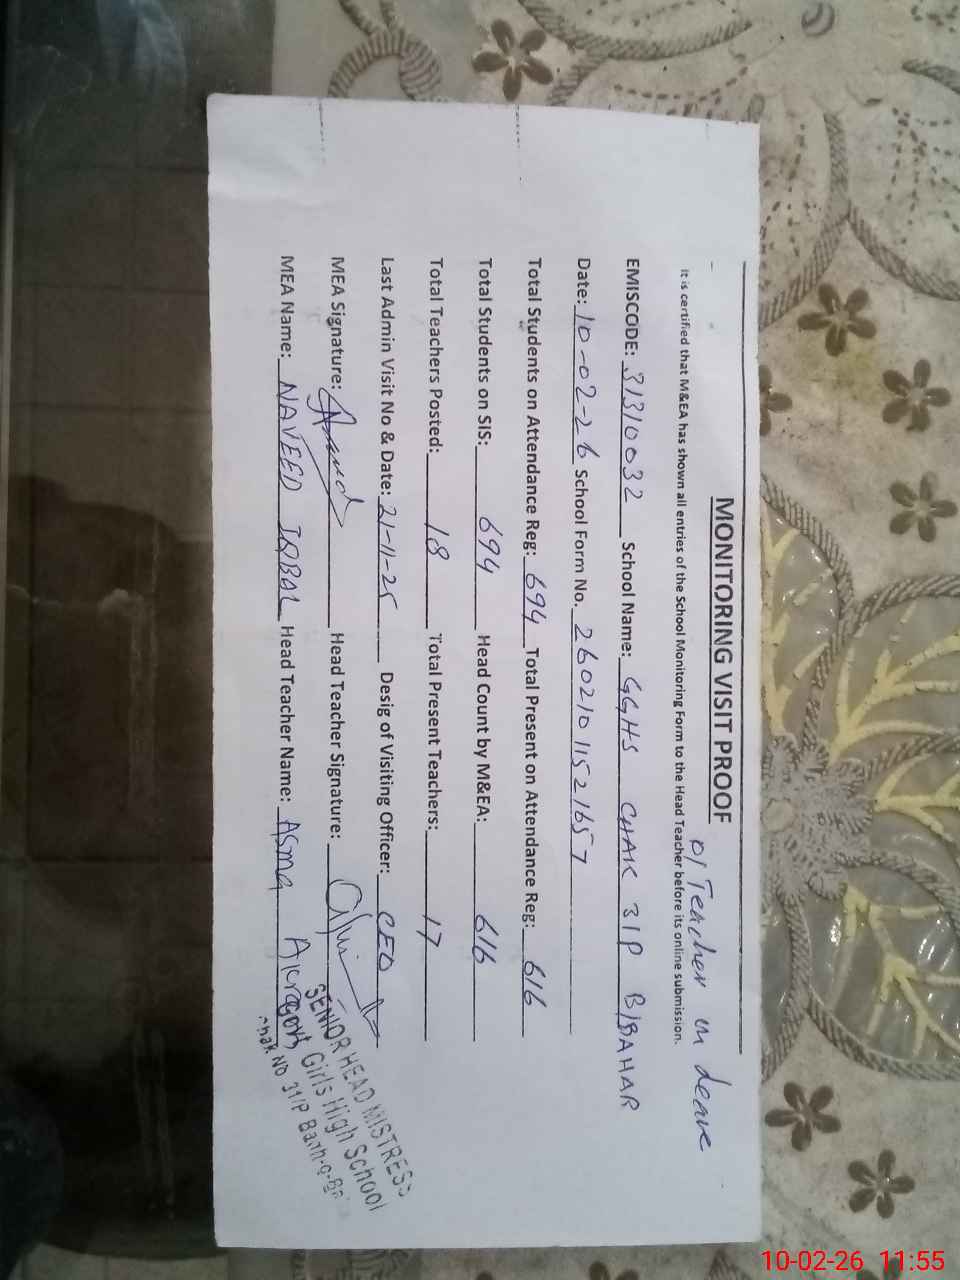 MONITORING VISIT PROOF
01 Teacher on leave
It is certified that M&EA has shown all entries of the School Monitoring Form to the Head Teacher before its online submission.
EMISCODE: 31310032 School Name: GGHS CHAK 31P B/BAHAR
Date: 10-02-26 School Form No. 26021011521657
Total Students on Attendance Reg: 694 Total Present on Attendance Reg: 616
Total Students on SIS: 694 Head Count by M&EA: 616
Total Teachers Posted: 18 Total Present Teachers: 17
Last Admin Visit No & Date: 21-11-25 Desig of Visiting Officer: CEO
MEA Signature: Head Teacher Signature:
MEA Name: NAVEED IQBAL Head Teacher Name: Asma
SENIOR HEAD MISTRESS
Govt Girls High School
Chak NO 31/P
10-02-26 11:55